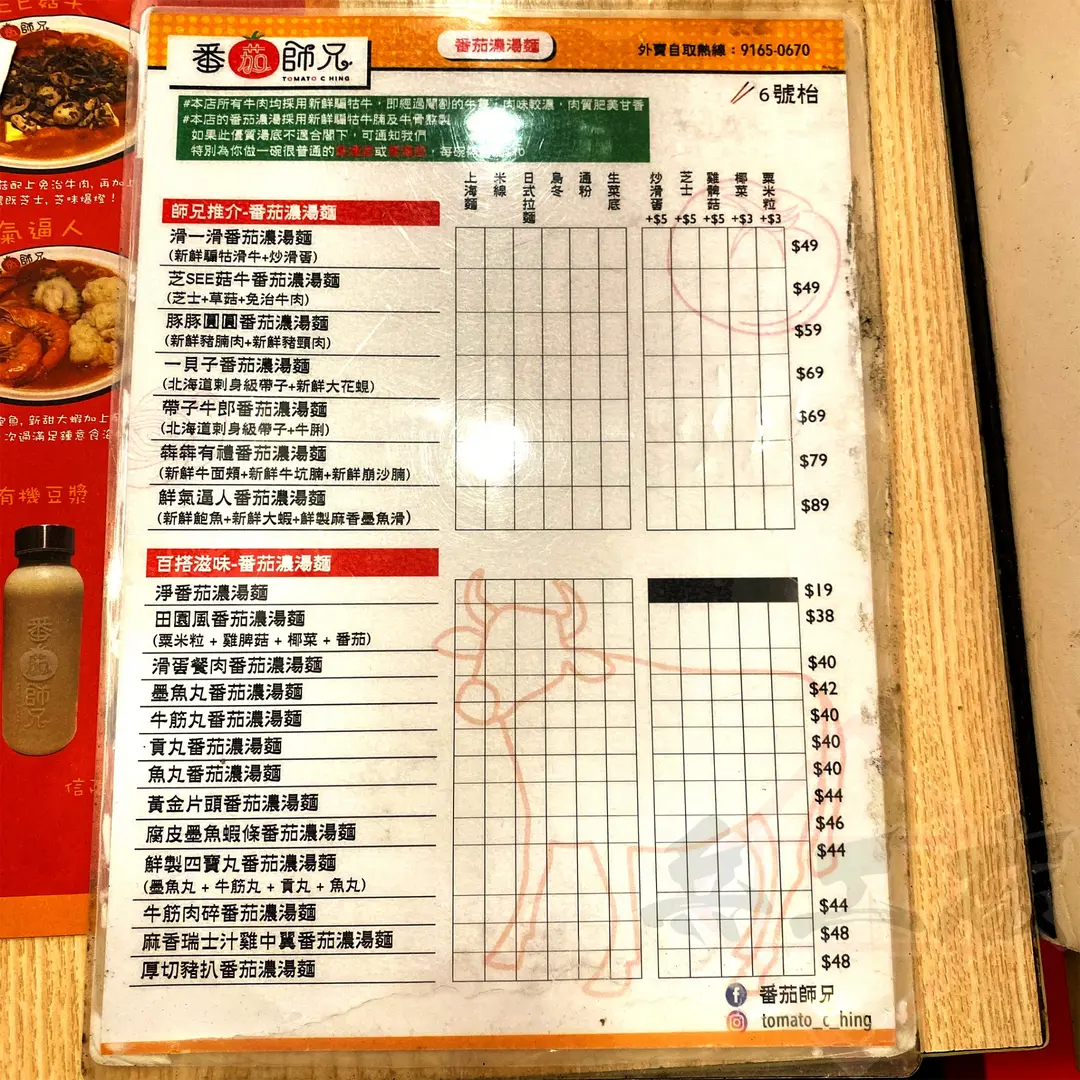 番茄師兄
TOMATO C HING
番茄濃湯麵
外賣自取熱線：9165-0670
6號枱
#本店所有牛肉均採用新鮮騸牯牛，即經過閹割的牛隻，肉味較濃，肉質肥美甘香
#本店的番茄濃湯採用新鮮騸牯牛腩及牛骨熬製
如果此優質湯底不適合閣下，可通知我們
特別為你做一碗很普通的
每碗
上海麵
米線
日式拉麵
烏冬
通粉
生菜底
炒滑蛋 +$5
芝士 +$5
雞髀菇 +$5
椰菜 +$3
粟米粒 +$3
師兄推介-番茄濃湯麵
滑一滑番茄濃湯麵 $49
(新鮮騸牯滑牛+炒滑蛋)
芝SEE菇牛番茄濃湯麵 $49
(芝士+草菇+免治牛肉)
豚豚圓圓番茄濃湯麵 $59
(新鮮豬腩肉+新鮮豬頸肉)
一貝子番茄濃湯麵 $69
(北海道刺身級帶子+新鮮大花蜆)
帶子牛郎番茄濃湯麵 $69
(北海道刺身級帶子+牛脷)
犇犇有禮番茄濃湯麵 $79
(新鮮牛面頰+新鮮牛坑腩+新鮮崩沙腩)
鮮氣逼人番茄濃湯麵 $89
(新鮮鮑魚+新鮮大蝦+鮮製麻香墨魚滑)
百搭滋味-番茄濃湯麵
淨番茄濃湯麵 $19
田園風番茄濃湯麵 $38
(粟米粒 + 雞脾菇 + 椰菜 + 番茄)
滑蛋餐肉番茄濃湯麵 $40
墨魚丸番茄濃湯麵 $42
牛筋丸番茄濃湯麵 $40
貢丸番茄濃湯麵 $40
魚丸番茄濃湯麵 $40
黃金片頭番茄濃湯麵 $44
腐皮墨魚蝦條番茄濃湯麵 $46
鮮製四寶丸番茄濃湯麵 $44
(墨魚丸 + 牛筋丸 + 貢丸 + 魚丸)
牛筋肉碎番茄濃湯麵 $44
麻香瑞士汁雞中翼番茄濃湯麵 $48
厚切豬扒番茄濃湯麵 $48
番茄師兄
tomato_c_hing
師兄
菇配上免治牛肉, 再加上
芝士, 芝味爆燈！
氣逼人
師兄
鮑魚, 新甜大蝦加上
次過滿足鍾意食海
有機豆漿
番茄師兄
信